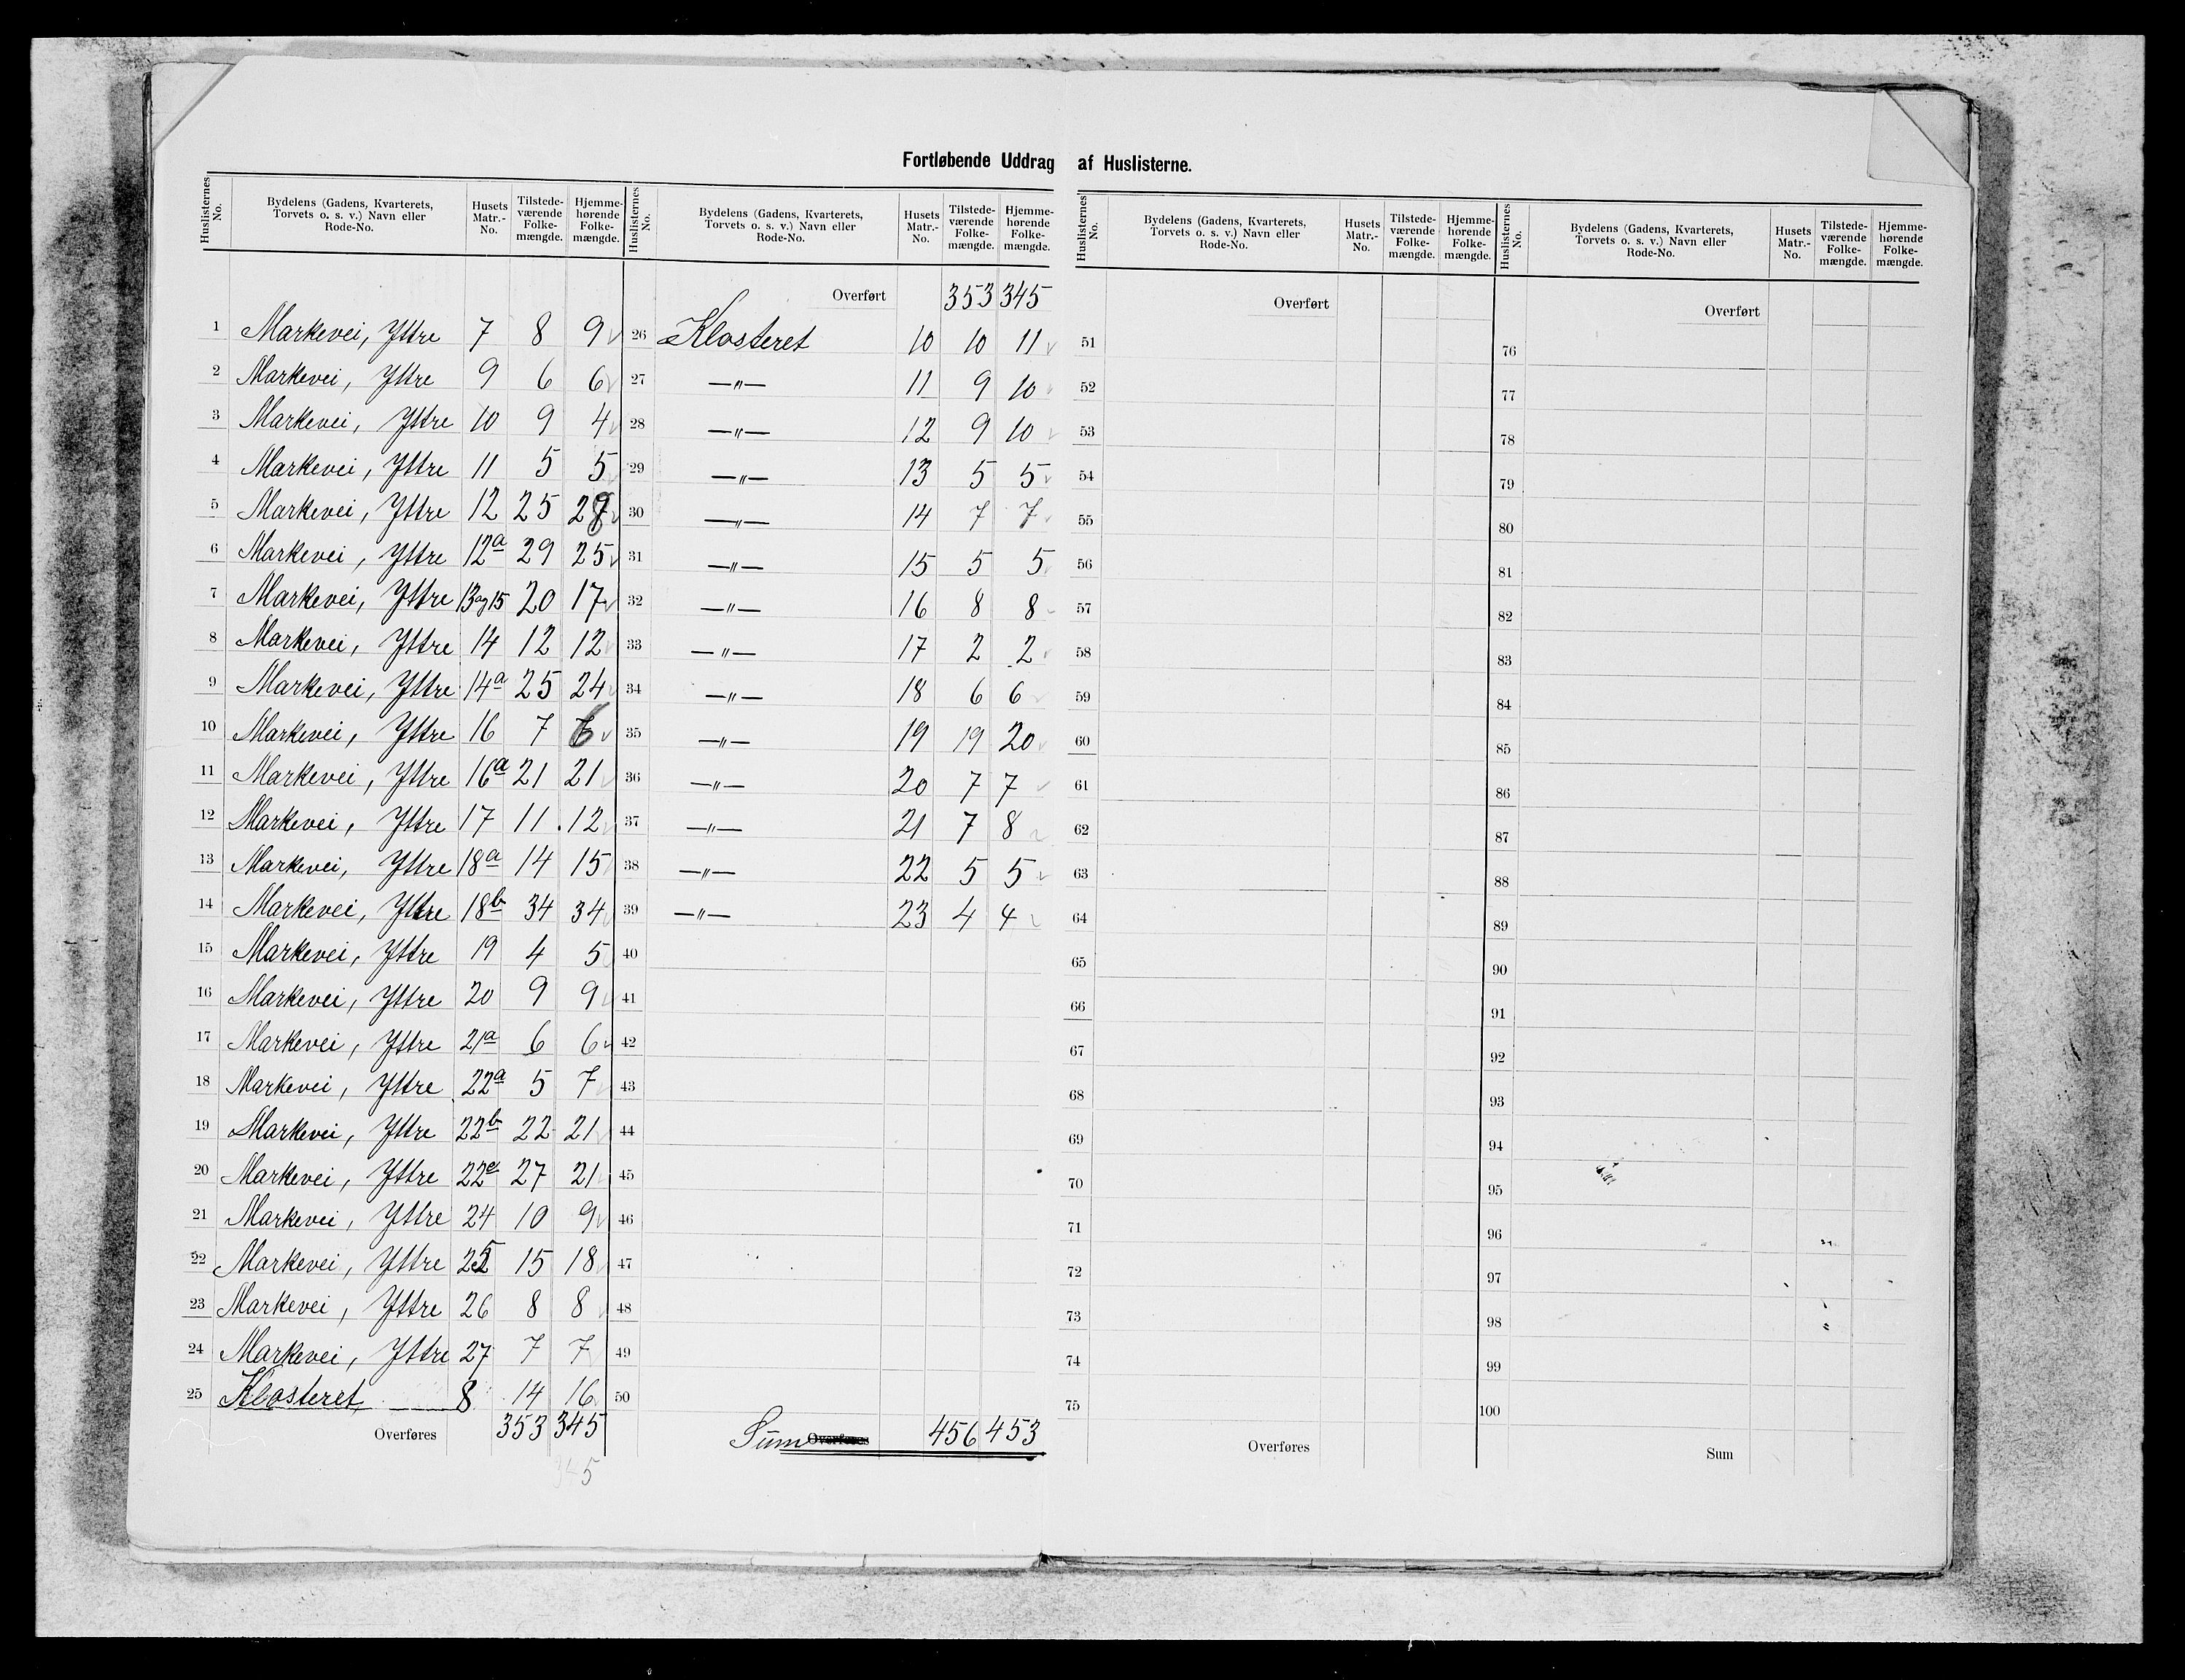 Fortløbende Uddrag af Huslisterne.
Huslisternes No. | Bydelens (Gadens, Kvarterets, Torvets o. s. v.) Navn eller Rode-No. | Husets Matr.-No. | Tilstedeværende Folkemængde. | Hjemmehørende Folkemængde.
1 Markevei, Yttre 7 8 9
2 Markevei, Yttre 9 6 6
3 Markevei, Yttre 10 9 4
4 Markevei, Yttre 11 5 5
5 Markevei, Yttre 12 25 28
6 Markevei, Yttre 12a 29 25
7 Markevei, Yttre 13 og 15 20 17
8 Markevei, Yttre 14 12 12
9 Markevei, Yttre 14a 25 24
10 Markevei, Yttre 16 7 6
11 Markevei, Yttre 16a 21 21
12 Markevei, Yttre 17 11 12
13 Markevei, Yttre 18a 14 15
14 Markevei, Yttre 18b 34 34
15 Markevei, Yttre 19 4 5
16 Markevei, Yttre 20 9 9
17 Markevei, Yttre 21a 6 6
18 Markevei, Yttre 22a 5 7
19 Markevei, Yttre 22b 22 21
20 Markevei, Yttre 27 21
21 Markevei, Yttre 24 10 9
22 Markevei, Yttre 25 15 18
23 Markevei, Yttre 26 8 8
24 Markevei, Yttre 27 7 7
25 Klosteret 8 14 16
Overføres 353 345
345
Huslisternes No. | Bydelens (Gadens, Kvarterets, Torvets o. s. v.) Navn eller Rode-No. | Husets Matr.-No. | Tilstedeværende Folkemængde. | Hjemmehørende Folkemængde.
Overført 353 345
26 Klosteret 10 10 11
27 —"— 11 9 10
28 —"— 12 9 10
29 —"— 13 5 5
30 —"— 14 7 7
31 —"— 15 5 5
32 —"— 16 8 8
33 —"— 17 2 2
34 —"— 18 6 6
35 —"— 19 19 20
36 —"— 20 7 7
37 —"— 21 7 8
38 —"— 22 5 5
39 —"— 23 4 4
40
41
42
43
44
45
46
47
48
49
50
Sum Overføres 456 453
Huslisternes No. | Bydelens (Gadens, Kvarterets, Torvets o. s. v.) Navn eller Rode-No. | Husets Matr.-No. | Tilstedeværende Folkemængde. | Hjemmehørende Folkemængde.
Overført
51
52
53
54
55
56
57
58
59
60
61
62
63
64
65
66
67
68
69
70
71
72
73
74
75
Overføres
Huslisternes No. | Bydelens (Gadens, Kvarterets, Torvets o. s. v.) Navn eller Rode-No. | Husets Matr.-No. | Tilstedeværende Folkemængde. | Hjemmehørende Folkemængde.
Overført
76
77
78
79
80
81
82
83
84
85
86
87
88
89
90
91
92
93
94
95
96
97
98
99
100
Sum